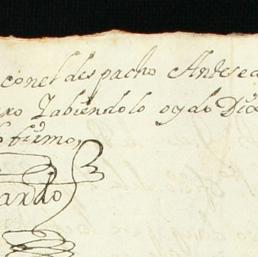 conel despacho Antesed
ro Zabiendolo oydo Dix
o firmo
ardo